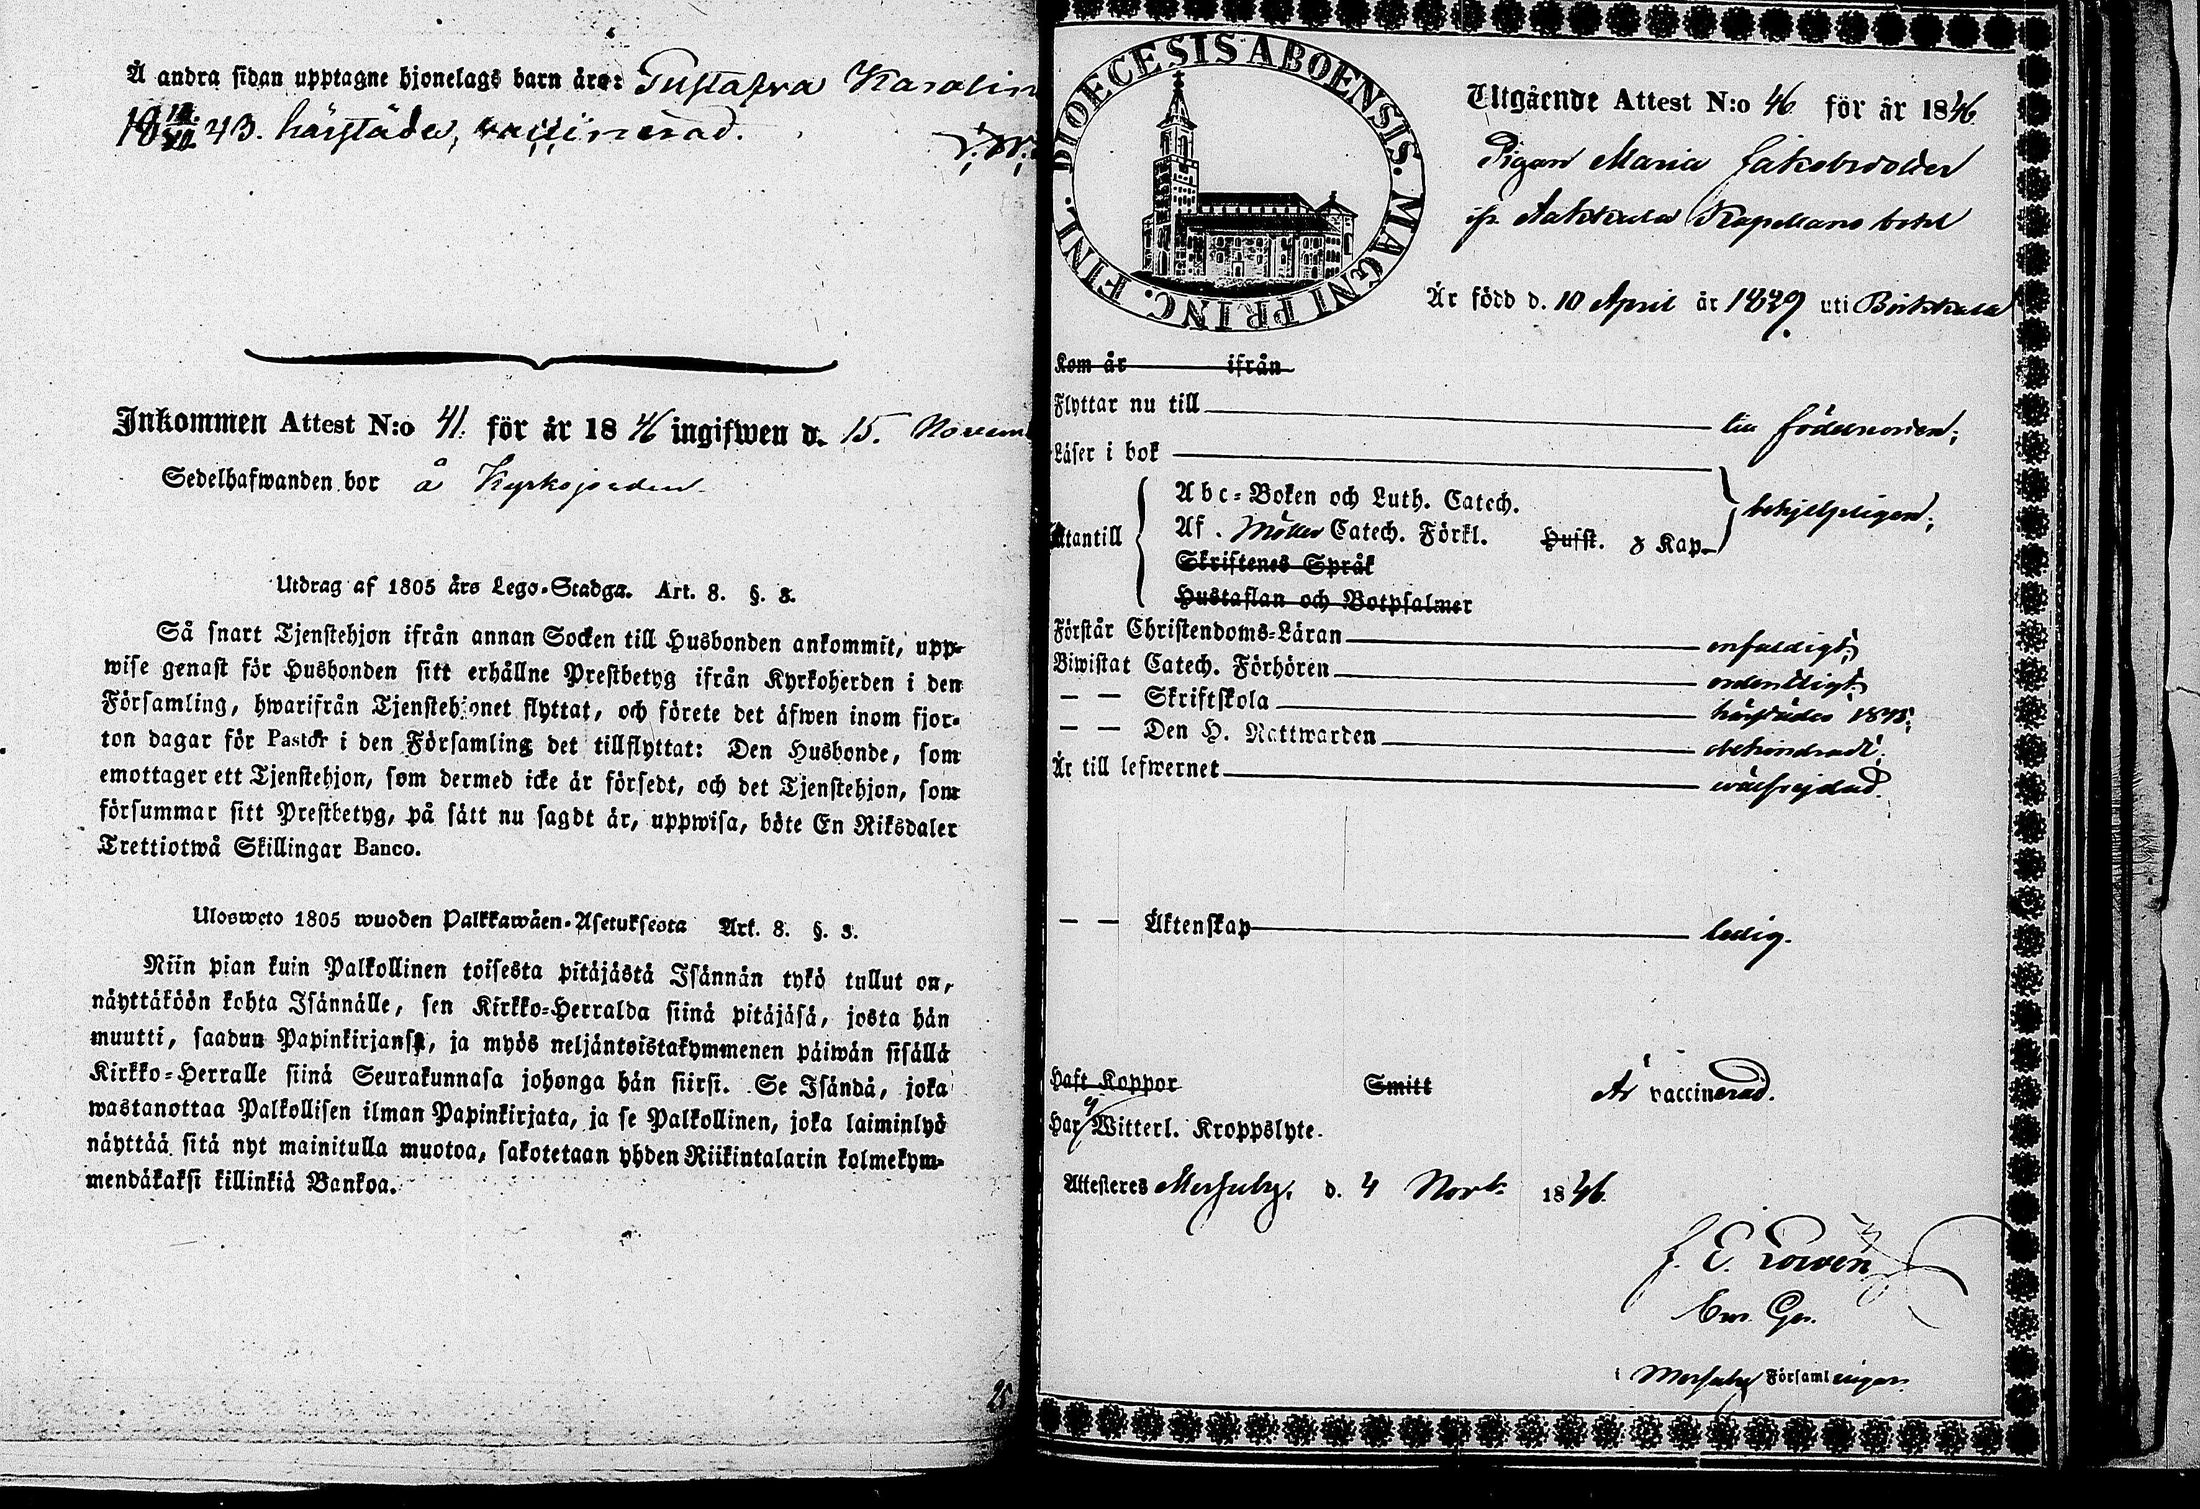 Å andra sidan upptagne hjonelags barn äro: Gustafva Karolin
18 43. härstädes, vaccinerad.
Inkommen Attest N:o 41. för år 1846 ingifwen d. 15. Novem
Sedelhafwanden bor å Kyrkojorden.
Utdrag af 1805 års Lego-Stadga. Art. 8. §. 3.
Så snart Tjenstehjon ifrån annan Socken till Husbonden ankommit, upp-
wise genast för Husbonden sitt erhållne Prestbetyg ifrån Kyrkoherden i den
Församling, hwarifrån Tjenstehjonet flyttat, och förete det äfwen inom fjor-
ton dagar för Pastor i den Församling det tillflyttat: Den Husbonde, som
emottager ett Tjenstehjon, som dermed icke är försedt, och det Tjenstehjon, som
försummar sitt Prestbetyg, på sätt nu sagdt är, uppwisa, böte En Riksdaler
Trettiotwå Skillingar Banco.
Ulosweto 1805 wuoden Palkkawäen-Asetuksesta Art. 8. §. 3.
Niin pian kuin Palkollinen toisesta pitäjästä Isännän tykö tullut on,
näyttäköön kohta Isännälle, sen Kirkko-Herralda siinä pitäjäsä, josta hän
muutti, saadun Papinkirjansa, ja myös neljäntoistakymmenen päiwän sisällä
Kirkko-Herralle siinä Seurakunnasa johonga hän siirsi. Se Isändä, joka
wastanottaa Palkollisen ilman Papinkirjata, ja se Palkollinen, joka laiminlyö
näyttää sitä nyt mainitulla muotoa, sakotetaan yhden Riikintalarin kolmekym-
mendäkaksi killinkiä Bankoa.
25
DIOECESIS ABOENSIS. MAGNI PRINC. FINL.
Utgående Attest N:o 46 för år 1846
Pigan Maria Jakobsdotter
ifr. Kapellans bohl
Är född d. 10 April år 1829. uti Birkkala
Kom år ifrån
Flyttar nu till födelseorten;
Läser i bok
Utantill
Abc-Boken och Luth. Catech.
Af Möller Catech. Förkl. Hufst. 8 Kap.
behjelpligen;
Skriftenes Språk
Hustaflan och Botpsalmer
Förstår Christendoms-Läran enfaldigt;
Biwistat Catech. Förhören ordentligt;
— — Skriftskola härstädes 1845;
— — Den H. Nattwarden obehindradt;
Är till lefwernet wälfrejdad.
— — Äktenskap ledig.
Haft Koppor Smitt Är vaccinerad.
Har ej Witterl. Kroppslyte.
Attesteres d. 4 Novbr 1846.
i Församlingen.